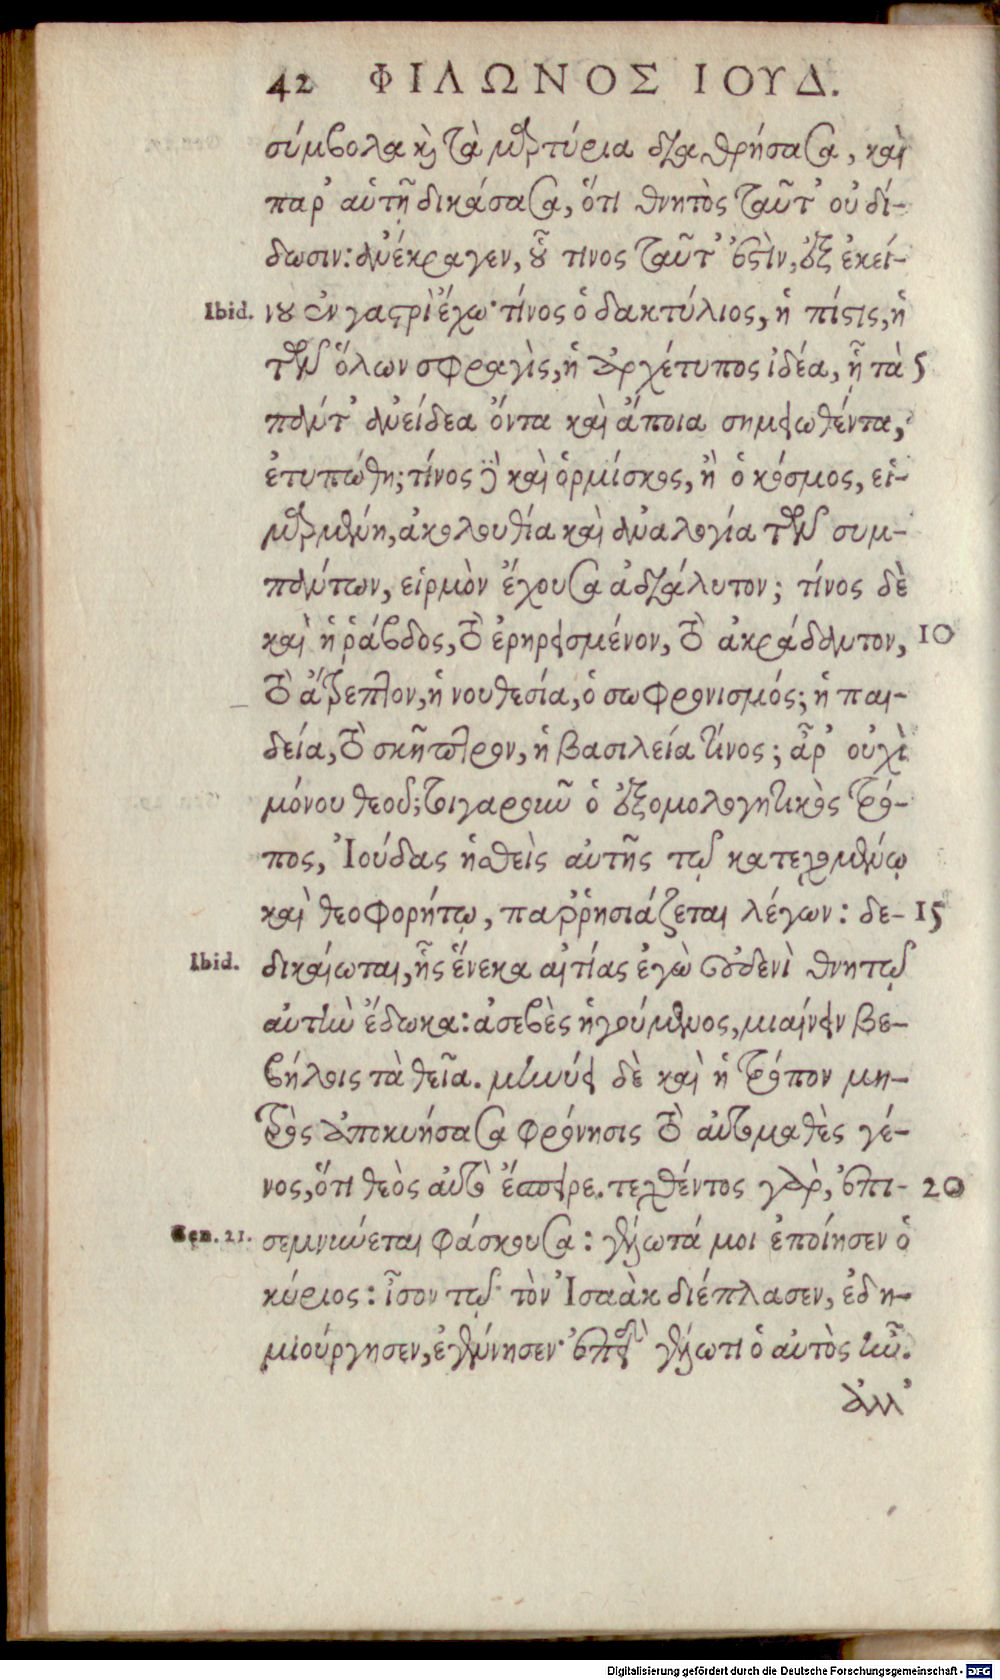 42 ΦΙΛΩΝΟΣ ΙΟΥΔ.
σύμβολα καὶ τὰ μαρτύρια διαθρήσασα, καὶ
παρ' αὑτῇ δικάσασα, ὅτι θνητὸς ταῦτ' οὐ δί-
δωσιν: ἀνέκραγεν, οὗ τινος ταῦτ' ἐστὶν, ἐξ ἐκεί-
Ibid. νου ἐν γαστρὶ ἔχω· τίνος ὁ δακτύλιος, ἡ πίστις, ἡ
τῶν ὅλων σφραγὶς, ἡ ἀρχέτυπος ἰδέα, ᾗ τὰ 5
πάντ' ἀνείδεα ὄντα καὶ ἄποια σημειωθέντα,
ἐτυπώθη; τίνος δὲ καὶ ὁρμίσκος, ἢ ὁ κόσμος, εἱ-
μαρμένη, ἀκολουθία καὶ ἀναλογία τῶν συμ-
πάντων, εἱρμὸν ἔχουσα ἀδιάλυτον; τίνος δὲ
καὶ ἡ ῥάβδος, τὸ ἐρηρεισμένον, τὸ ἀκράδαντον, 10
τὸ ἄτρεπτον, ἡ νουθεσία, ὁ σωφρονισμός; ἡ παι-
δεία, τὸ σκῆπτρον, ἡ βασιλεία τίνος; ἆρ' οὐχὶ
μόνου θεοῦ; τοιγαροῦν ὁ ἐξομολογητικὸς τρό-
πος, Ἰούδας ἡσθεὶς αὐτῆς τῷ κατεχομένῳ
καὶ θεοφορήτῳ, παῤῥησιάζεται λέγων: δε- 15
Ibid. δικαίωται, ἧς ἕνεκα αἰτίας ἐγὼ οὐδενὶ θνητῷ
αὐτὴν ἔδωκα: ἀσεβὲς ἡγούμενος, μιαίνειν βε-
βήλοις τὰ θεῖα. μηνύει δὲ καὶ ἡ τρόπον μη-
τρὸς ἀποκυήσασα φρόνησις τὸ αὐτομαθὲς γέ-
νος, ὅτι θεὸς αὐτὸ ἔσπειρε. τεχθέντος γὰρ, ἐπι- 20
Gen. 21. σεμνύνεται φάσκουσα: γέλωτά μοι ἐποίησεν ὁ
κύριος: ἶσον τῷ· τὸν Ἰσαὰκ διέπλασεν, ἐδη-
μιούργησεν, ἐγέννησεν· ἐπειδὴ γέλωτι ὁ αὐτὸς ἦν.
ἀλλ'
Digitalisierung gefördert durch die Deutsche Forschungsgemeinschaft - DFG